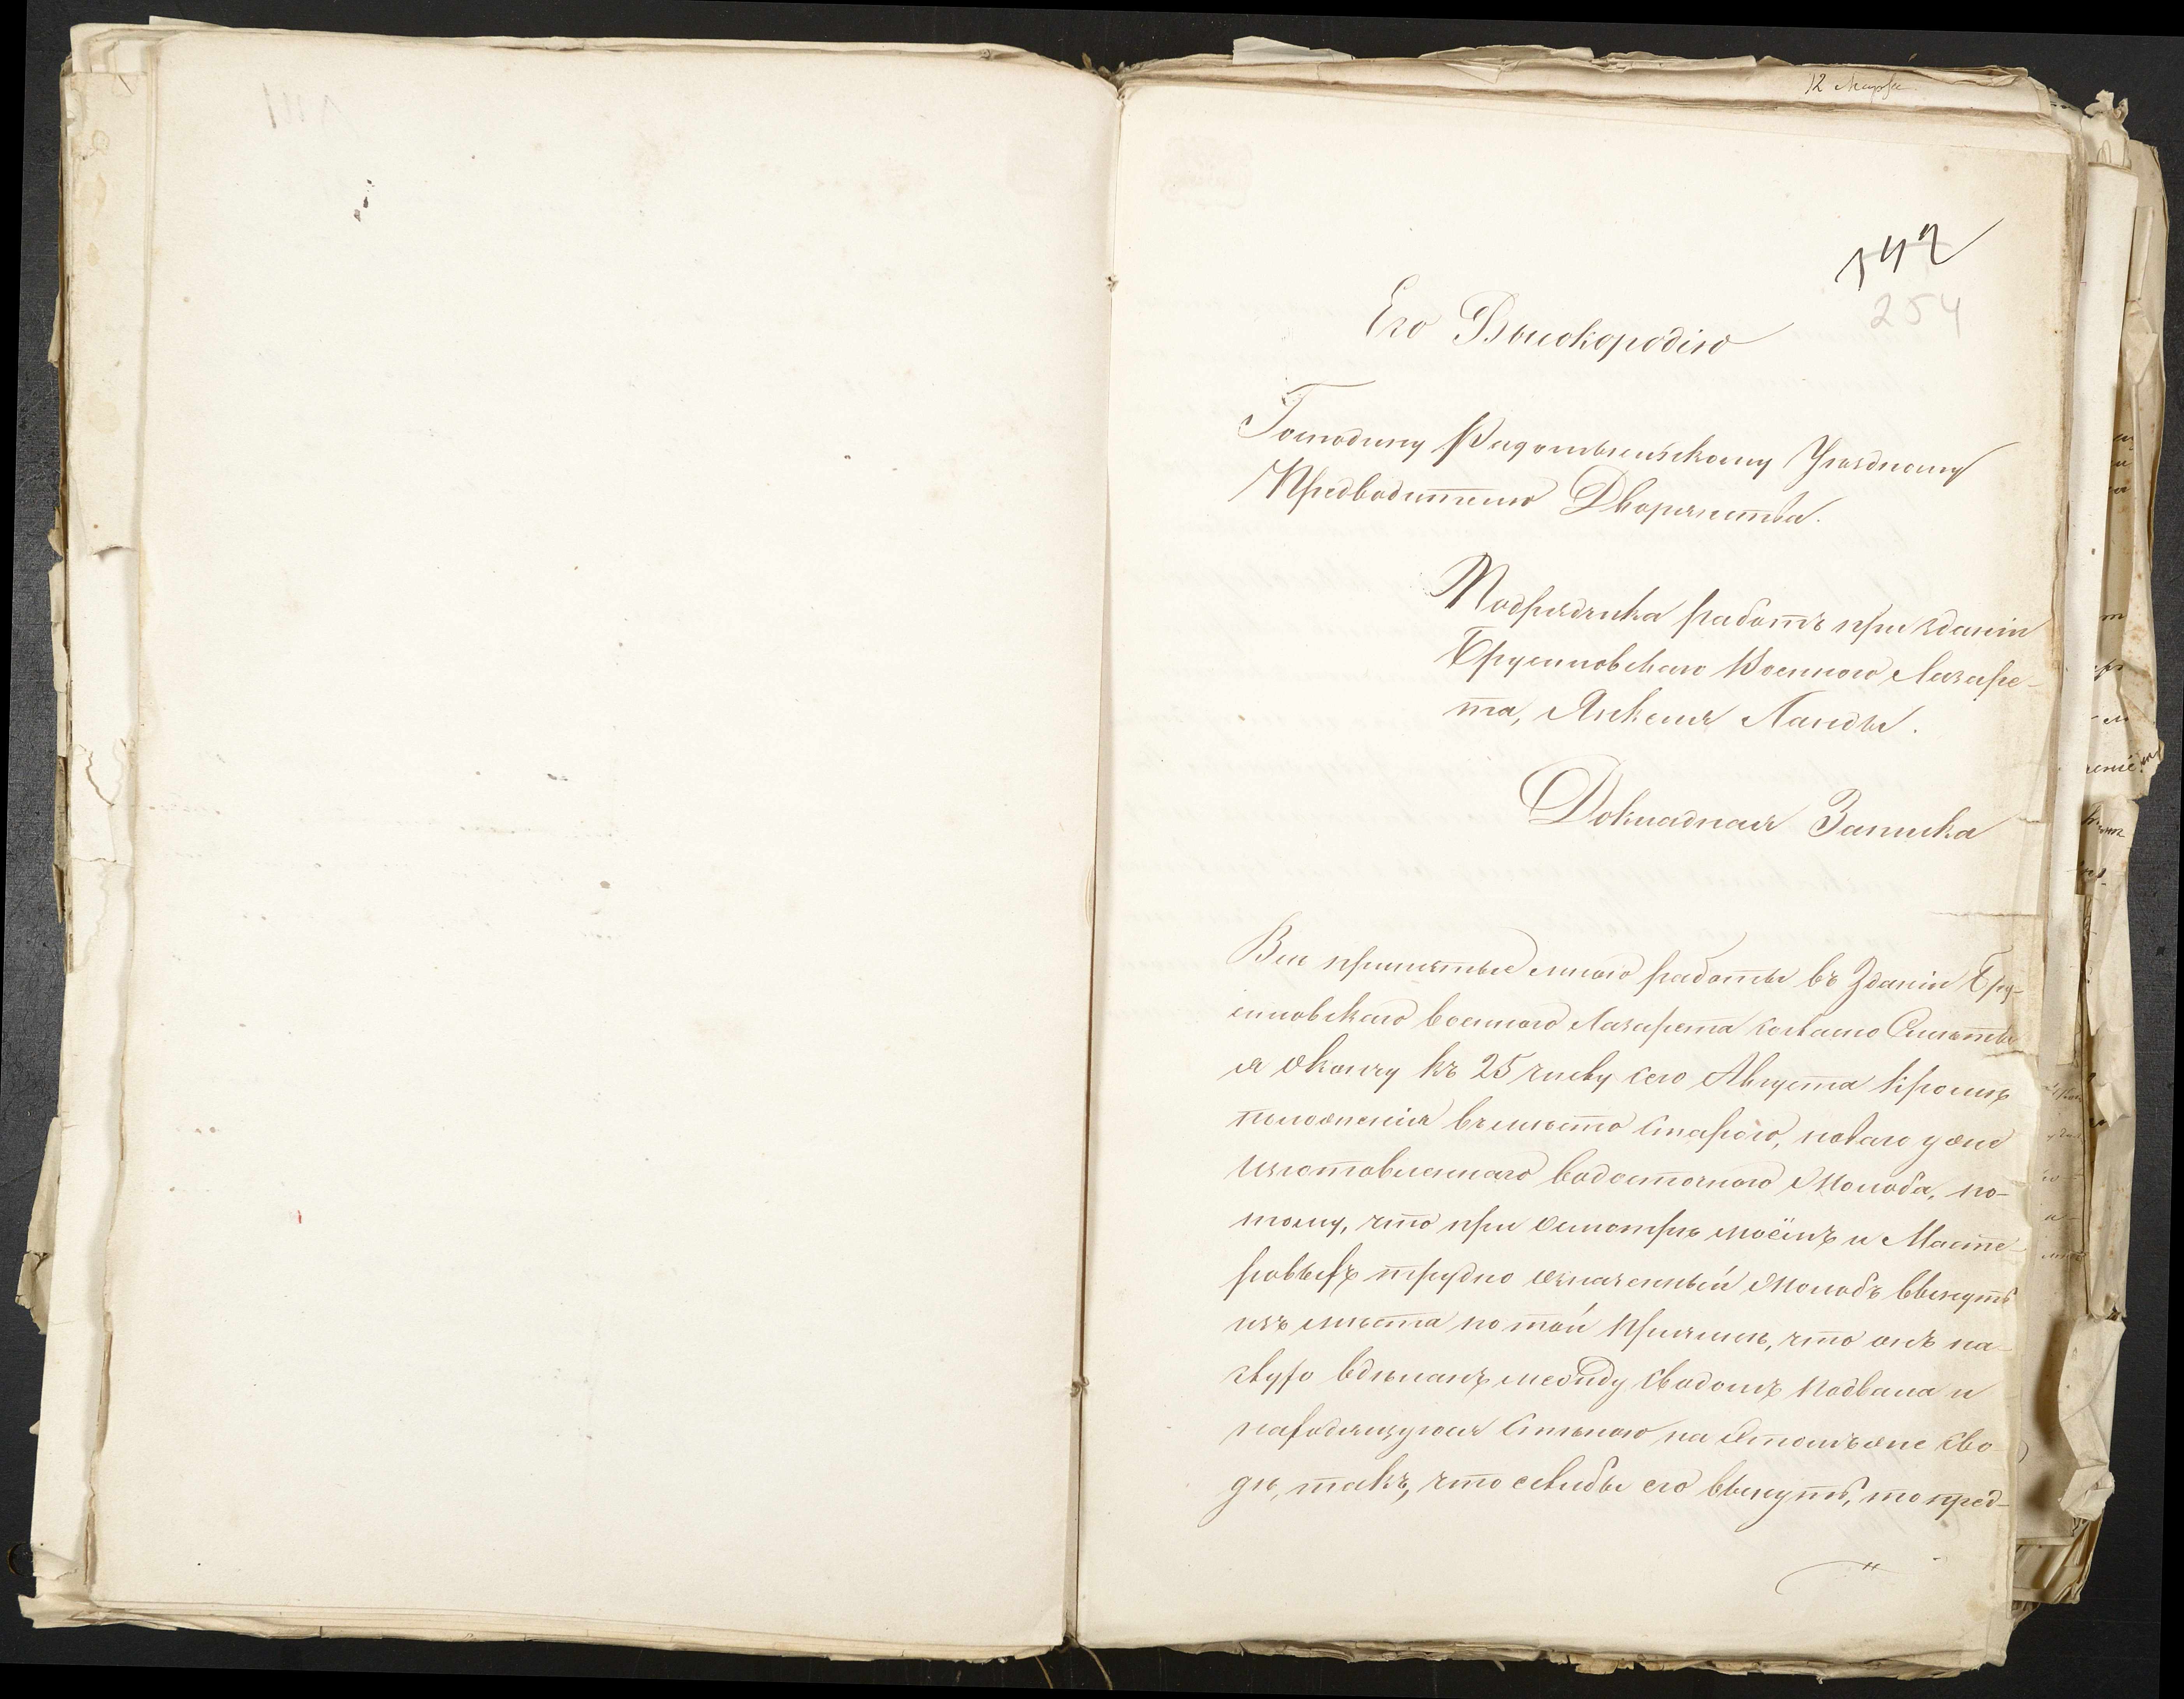 12 Марта
342
254
Его Высокородію
Господину Радомысльскому Уѣздному
Предводителю Дворянства.
Подрядчика работъ при зданіи
Брусиловскаго Военнаго Лазаре-
та, Янкеля Ланды.
Докладная Записка
Все принятые мною работы въ Зданіи Бру-
силовскаго военнаго Лазарета согласно Смѣты
я окончу къ 25 числу сего Августа кромѣ
положенія вмѣсто стараго, новаго уже
изготовленнаго водосточнаго Жолоба, по-
тому, что при осмотрѣ моёмъ и Масте-
ровыхъ трудно означенный Жолобъ вынуть
изъ мѣста по той Причинѣ, что онъ на-
глухо вдѣланъ между сводомъ Подвала и
находящуюся Стѣною на Томъ же сво-
дѣ, такъ, что если бы его вынуть, то пред-